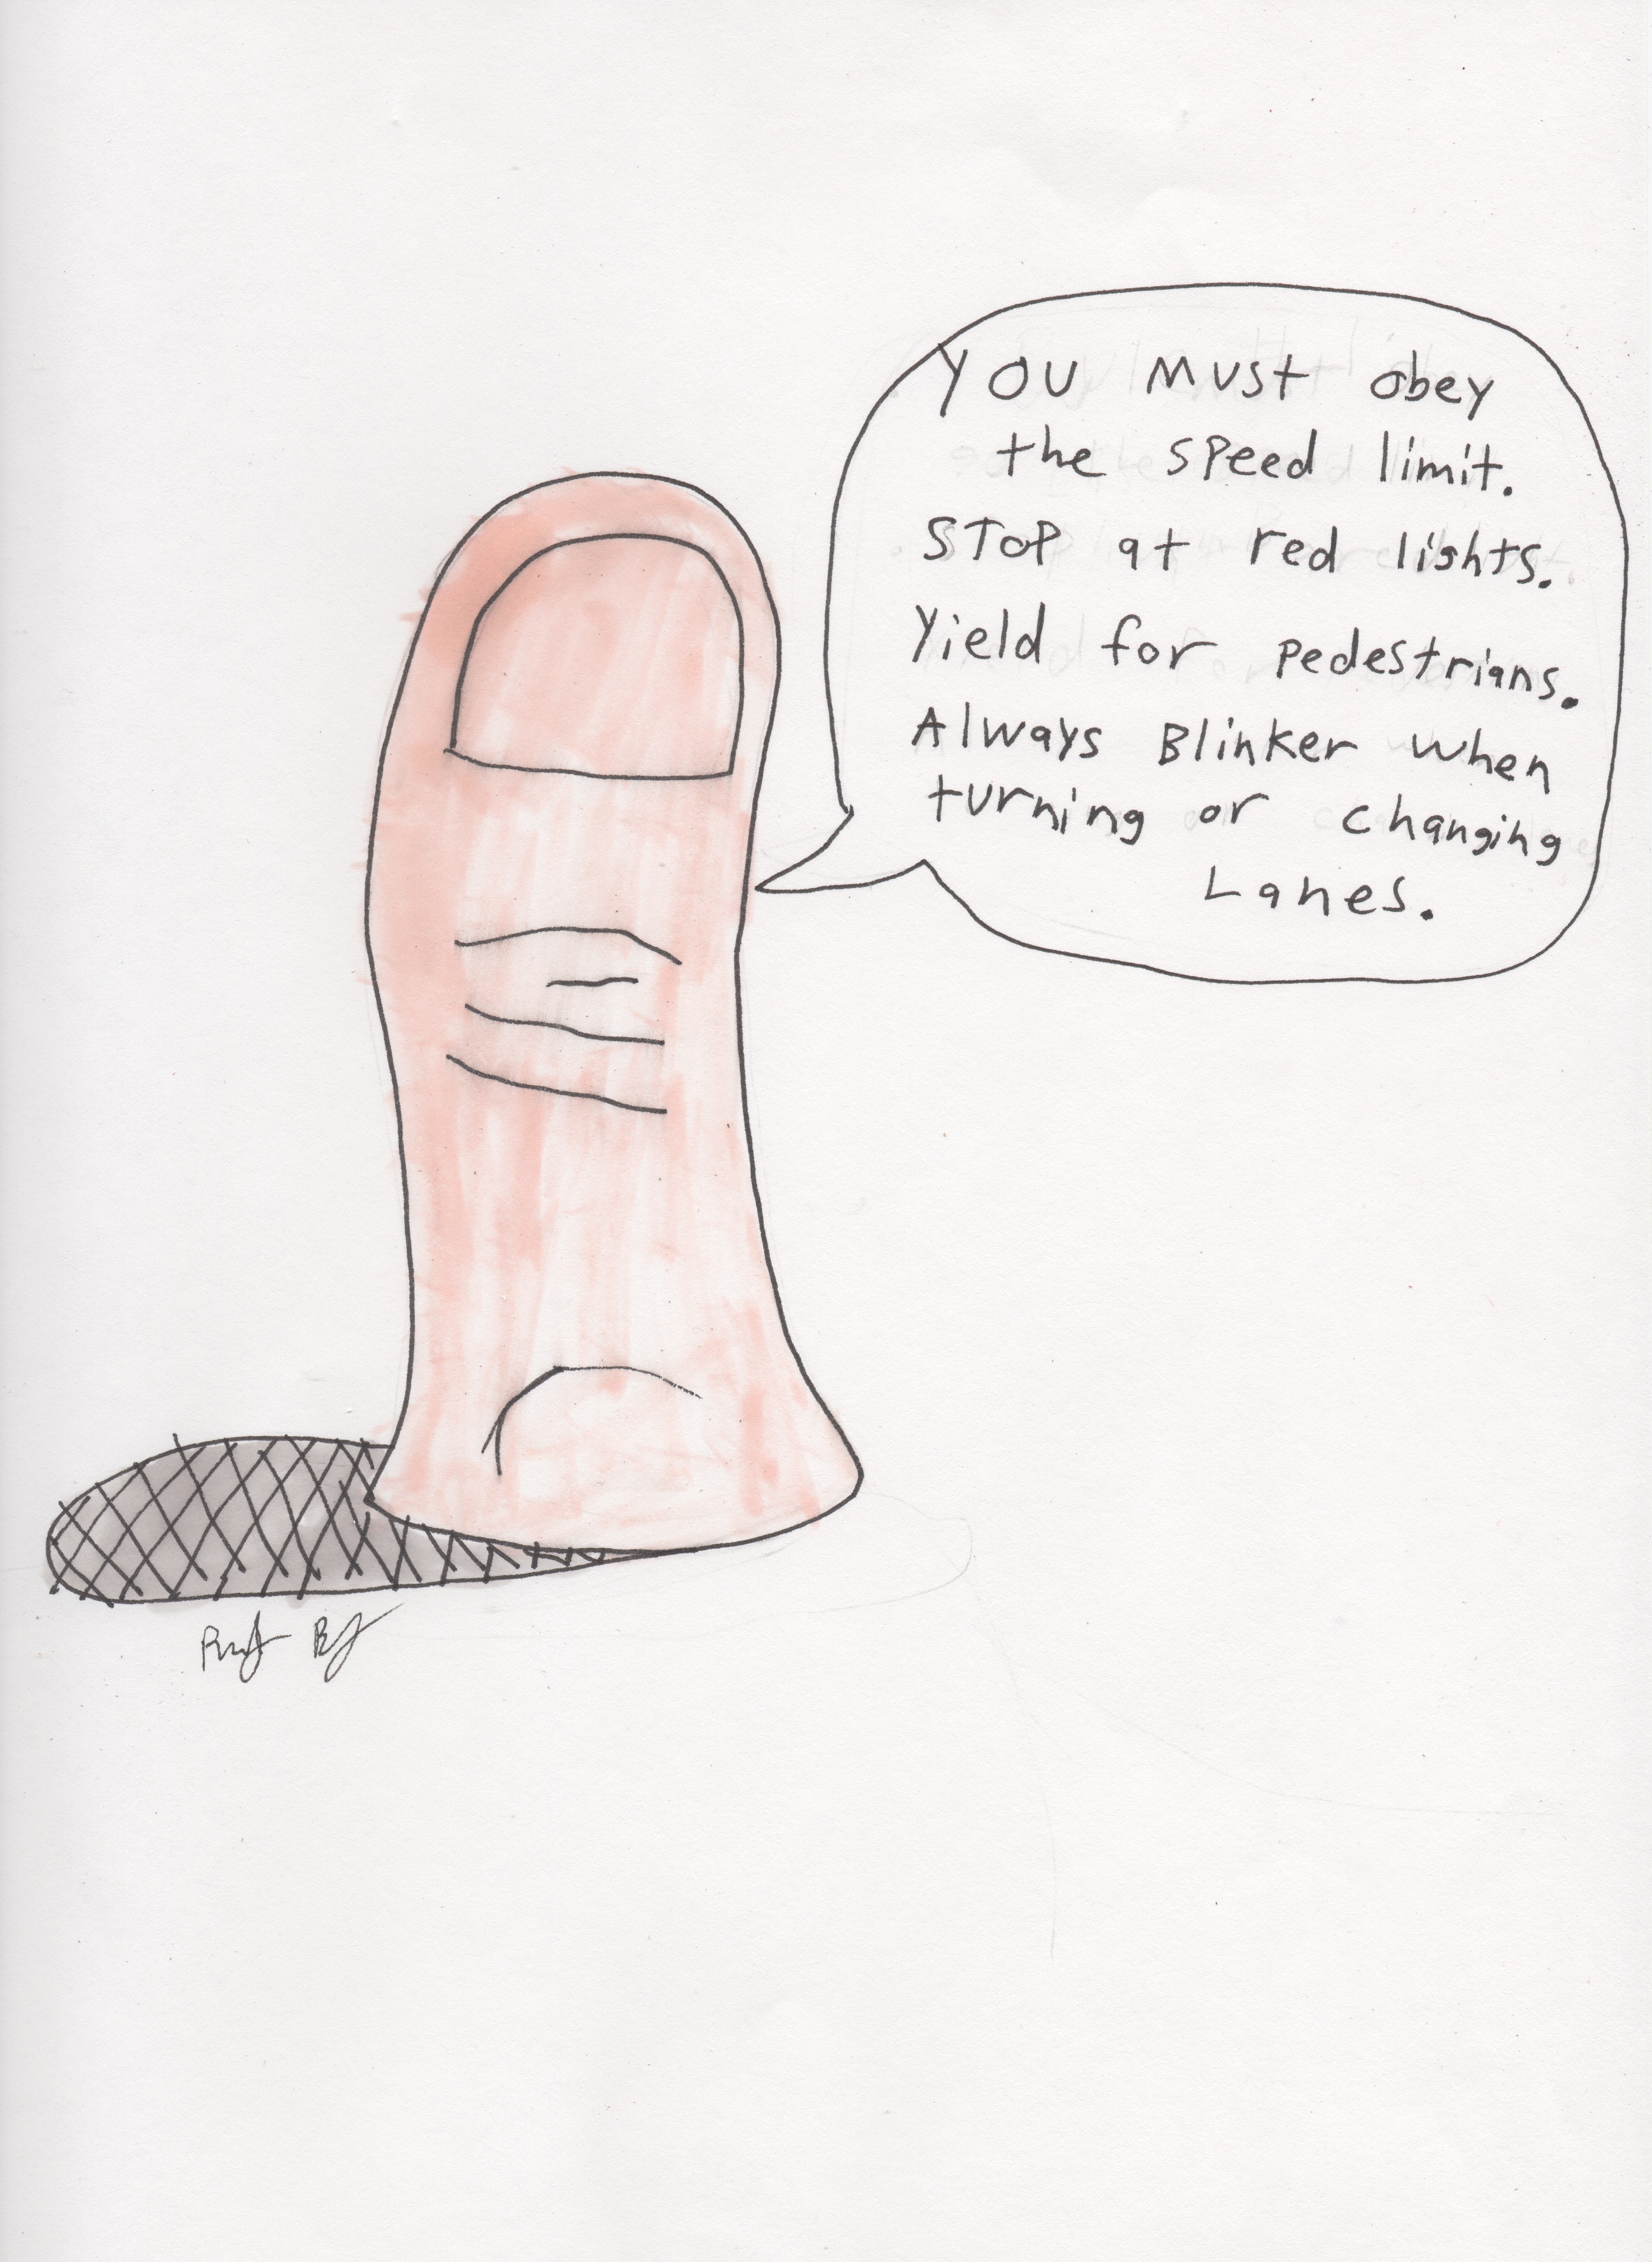 You Must obey
the speed limit.
STOP at red lights.
Yield for pedestrians.
Always Blinker when
turning or changing
Lanes.